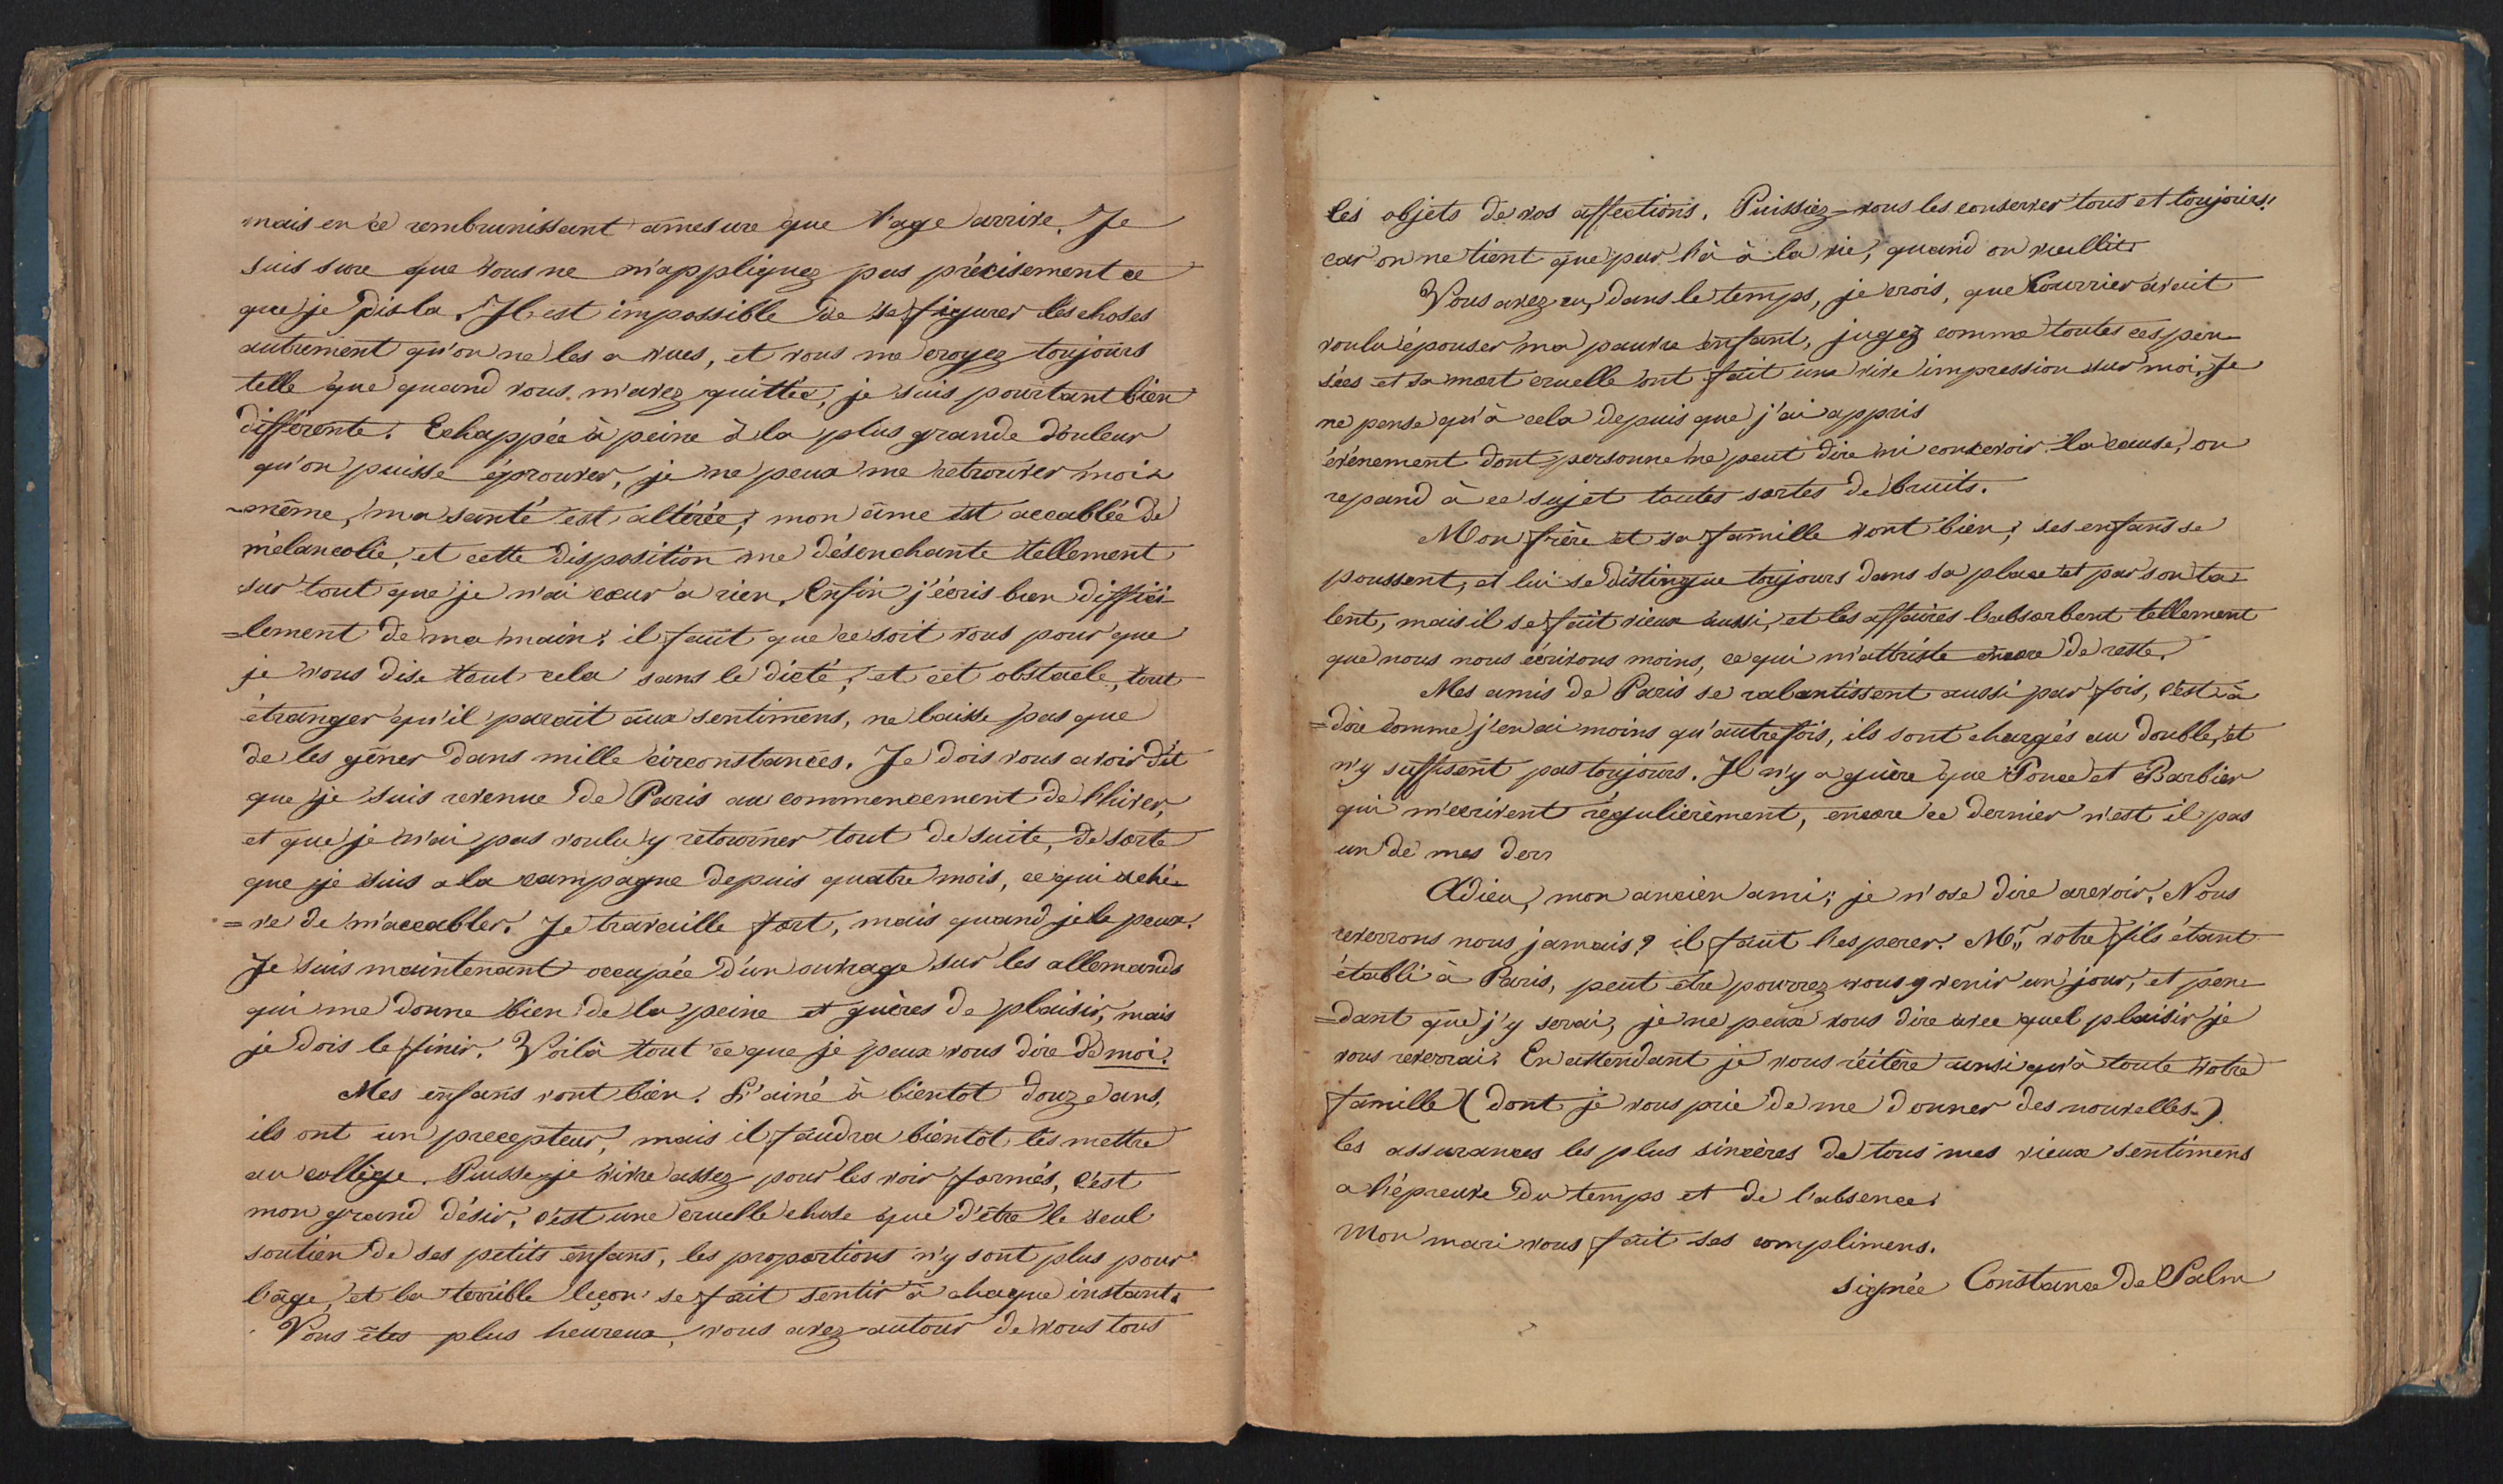 mais en se rembrunissant amesure que l'age arrive. Je
suis sure que vous ne m'appliquez pas précisement ce
que je dis la. Il est impossible de se figurer les choses
autrement qu'on ne les a vues, et vous me croyez toujours
telle que quand vous m'avez quittée, je suis pourtant bien
différente. Echappée à peine à la plus grande douleur
qu'on puisse éprouver, je ne peux me retrouver moi-
-même, ma santé est altérée, mon âme est accablée de
mélancolie, et cette disposition me désenchante tellement
sur tout que je n'ai cœur a rien. Enfin j'écris bien diffici-
=lement de ma main; il faut que ce soit vous pour que
je vous dise tout cela sans le dicté, et cet obstacle, tout
étranger qu'il parait aux sentimens, ne laisse pas que
de les gêner dans mille circonstances. Je dois vous avoir dit
que je suis revenue de Paris au commencement de l'hiver,
et que je n'ai pas voulu y retourner tout de suite, de sorte
que je suis a la campagne depuis quatre mois, ce qui achè-
=ve de m'accabler. Je travaille fort, mais quand je le peux.
Je suis maintenant occupée d'un ouvrage sur les allemands
qui me donne bien de la peine et guères de plaisir, mais
je dois le finir. Voilà tout ce que je peux vous dire de moi.
Mes enfans vont bien. L'ainé à bientot douze ans,
ils ont un precepteur, mais il faudra bientôt les mettre
au collège. Puisse-je vivre assez pour les voir formés, c'est
mon grand désir, c'est une cruelle chose que d'être le seul
soutien de ses petits enfans, les proportions n'y sont plus pour
l'âge, et la terrible leçon se fait sentir à chaque instant.
Vous êtes plus heureux, vous avez autour de vous tous
les objets de vos affections. Puissiez-vous les conserver tous et toujours!
car on ne tient que par là à la vie, quand on vieillit.
Vous avez su, dans le temps, je crois, que Courrier avait
voulu épouser ma pauvre enfant, jugez comme toutes ces pen-
sées et sa mort cruelle ont fait une vive impression sur moi. Je
ne pense qu'à cela depuis que j'ai appris
évènement dont personne ne peut dire ni concevoir la cause, on
repand à ce sujet toutes sortes de bruits.
Mon frère et sa famille vont bien; ses enfans se
poussent, et lui se distingue toujours dans sa place et par son ta-
lent, mais il se fait vieux aussi, et les affaires l'absorbent tellement
que nous nous écrivons moins, ce qui m'attriste encore de reste.
Mes amis de Paris se ralentissent aussi par fois, c'est à
=dire comme j'en ai moins qu'autrefois, ils sont chargés au double, et
n'y suffisent pas toujours. Il n'y a guère que Ponce et Barbier
qui m'ecrivent régulièrement, encore ce dernier n'est il pas
un de mes
Adieu, mon ancien ami; je n'ose dire arevoir. Nous
reverrons nous jamais? il faut l'esperer. Mr votre fils étant
établi à Paris, peut être pourrez vous y venir un jour, et pen-
=dant que j'y serai, je ne peux vous dire avec quel plaisir je
vous reverrai. En attendant je vous réitère ainsi qu'à toute votre
famille (dont je vous prie de me donner des nouvelles.)
les assurances les plus sincères de tous mes vieux sentimens
a l'épreuve du temps et de l'absence.
Mon mari vous fait ses complimens.
signée Constance de Salm